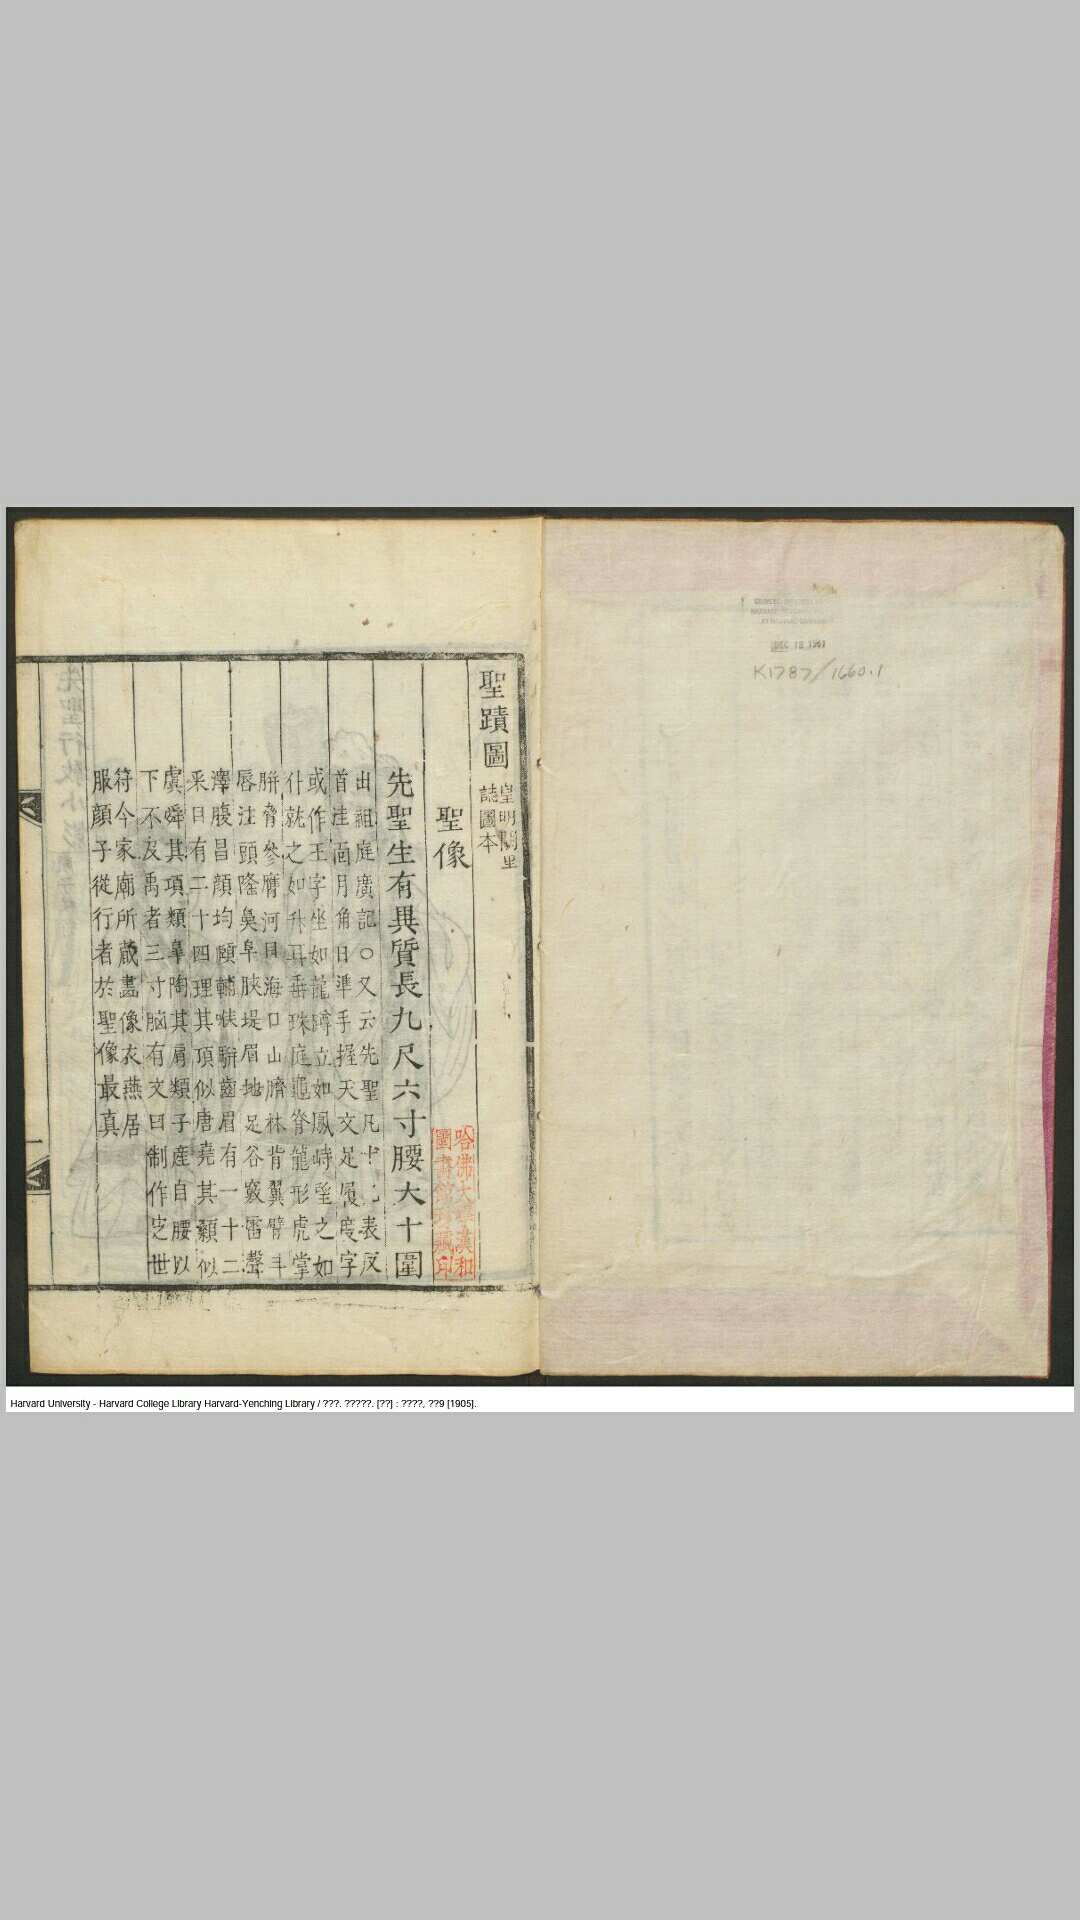 聖蹟圖
皇明闕里
誌圖本
聖像
先聖生有異質長九尺六寸腰大十圍
出祖庭廣記○又云先聖凡十二表反
首洼面月角日準手握天文足履度字
或作王字坐如龍蹲立如鳳峙望之如
仆就之如升耳垂珠庭龜脊龍形虎掌
胼脅參膺河目海口山臍林背翼臂斗
唇注頭隆鼻阜脥堤眉地足谷竅雷聲
澤腹昌顏均頤輔喉駢齒眉有一十二
采目有二十四理其頂似唐堯其顙似
虞舜其項類皋陶其肩類子產自腰以
下不及禹者三寸胸有文曰制作定世
符今家廟所蔵畵像衣燕居
服顏子從行者於聖像最真
哈佛大學漢和
圖書館珍藏印
一
DEC 18 1961
K1787/1660.1
Harvard University - Harvard College Library Harvard-Yenching Library / ???. ?????. [??] : ????, ??9 [1905].